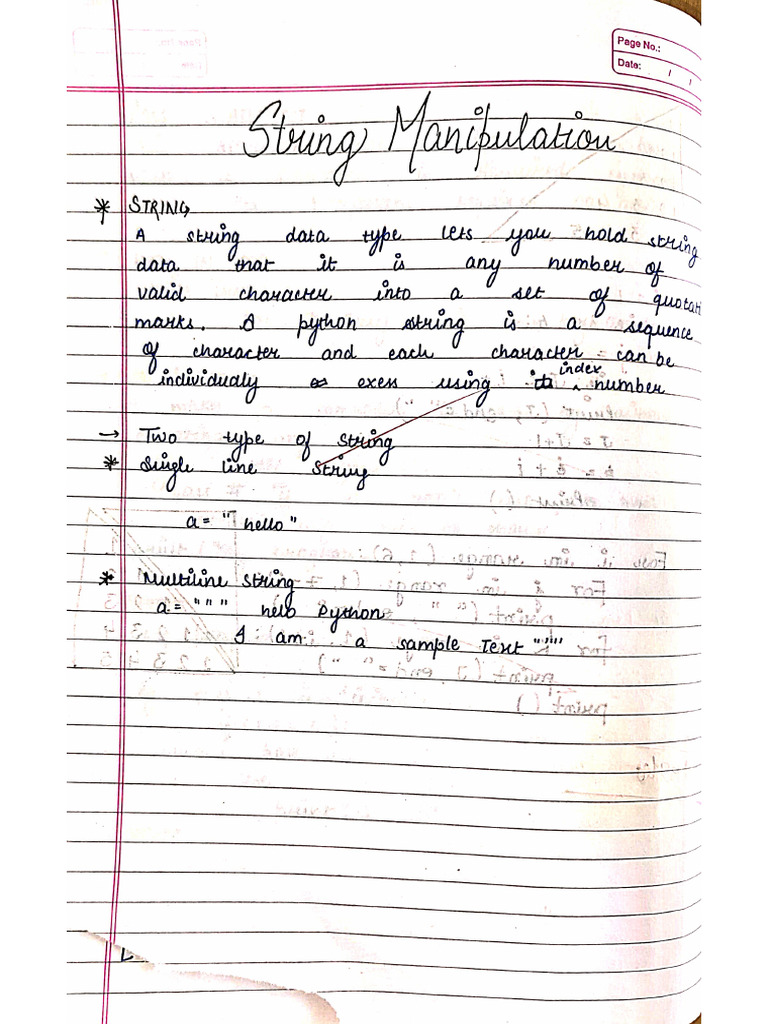 Page No.:
Date: / /
String Manipulation
* STRING
A string data type lets you hold string
data that it is any number of
valid character into a set of quotati
marks. A python string is a sequence
of character and each character can be
individually exess using index number
→ Two type of string
* Single line String
a = "hello"
* Multiline string
a = """ hello Python
I am a sample Text """